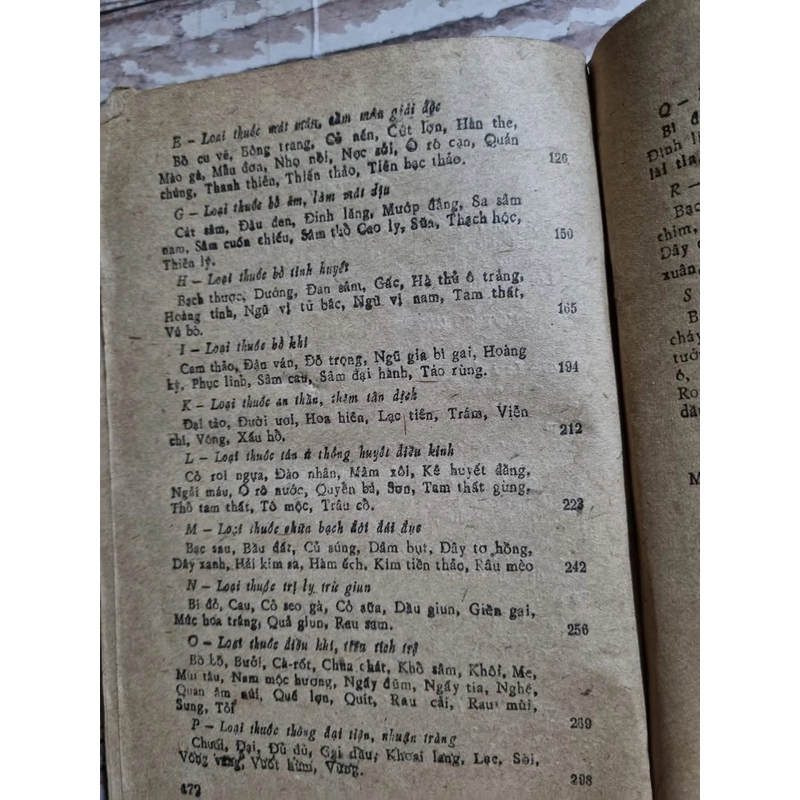 E — Loại thuốc mát máu, tiêu mẩn giải độc
Bồ cu vẽ, Bông trang, Cỏ nến, Cút lợn, Hàn the,
Mào gà, Mẫu đơn, Nhọ nồi, Nọc sởi, Ô rô cạn, Quán
chúng, Thanh thiên, Thiến thảo, Tiên hạc thảo. 126
G — Loại thuốc bổ âm, làm mát dịu
Cát sâm, Đậu đen, Đinh lăng, Mướp đắng, Sa sâm
nam, Sâm cuốn chiếu, Sâm thổ Cao ly, Sữa, Thạch hộc,
Thiên lý. 150
H — Loại thuốc bổ tinh huyết
Bạch thược, Dướng, Đan sâm, Gấc, Hà thủ ô trắng,
Hoàng tinh, Ngũ vị tử bắc, Ngũ vị nam, Tam thất,
Vú bò. 165
I — Loại thuốc bổ khí
Cam thảo, Đậu ván, Đỗ trọng, Ngũ gia bì gai, Hoàng
kỳ, Phục linh, Sâm cau, Sâm đại hành, Táo rừng. 194
K — Loại thuốc an thần, thêm tân dịch
Đại táo, Đười ươi, Hoa hiên, Lạc tiên, Trám, Viễn
chí, Vông, Xấu hổ. 212
L — Loại thuốc tán ứ thông huyết điều kinh
Cỏ roi ngựa, Đào nhân, Mâm xôi, Kê huyết đằng,
Ngải máu, Ô rô nước, Quyển bá, Sơn, Tam thất gừng,
Thổ tam thất, Tô mộc, Trâu cổ. 223
M — Loại thuốc chữa bạch đới đái đục
Bạc sau, Bầu đất, Củ súng, Dâm bụt, Dây tơ hồng,
Dây xanh, Hải kim sa, Hàm ếch, Kim tiền thảo, Râu mèo 242
N — Loại thuốc trị lỵ trừ giun
Bí đỏ, Cau, Cỏ seo gà, Cỏ sữa, Dầu giun, Giền gai,
Mức hoa trắng, Quả giun, Rau sam. 256
O — Loại thuốc điều khí, tiêu tích trệ
Bồ bồ, Bưởi, Cà-rốt, Chùa chát, Khổ sâm, Khôi, Me,
Mùi tàu, Nam mộc hương, Ngấy đũm, Ngấy tía, Nghệ,
Quan âm núi, Quế lợn, Quít, Rau cải, Rau mùi,
Sung, Tỏi 269
P — Loại thuốc thông đại tiện, nhuận tràng
Chuối, Đại, Đu đủ, Gai dầu, Khoai lang, Lạc, Sòi,
Vông vang, Vuốt hùm, Vừng. 298
472
Q —
Bí đ
Định l
lai tía
R —
Bạc
chim,
Dây c
xuân,
S
B
cháy
tướ
ô,
Ro
dầ
M